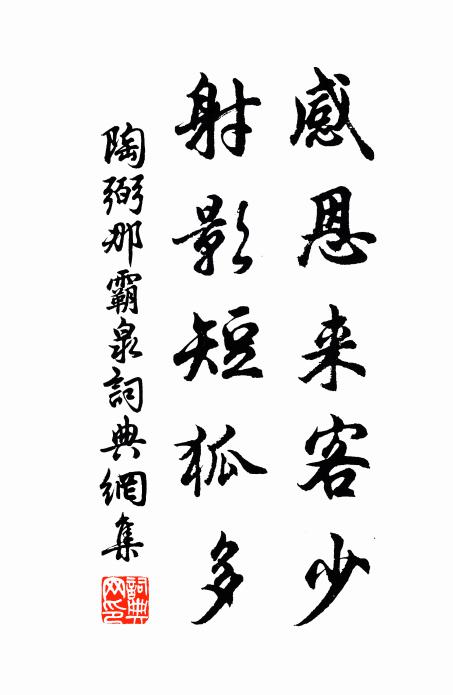 感恩来客少
射影短狐多
陶弼那霸泉詞典網集
詞典网印